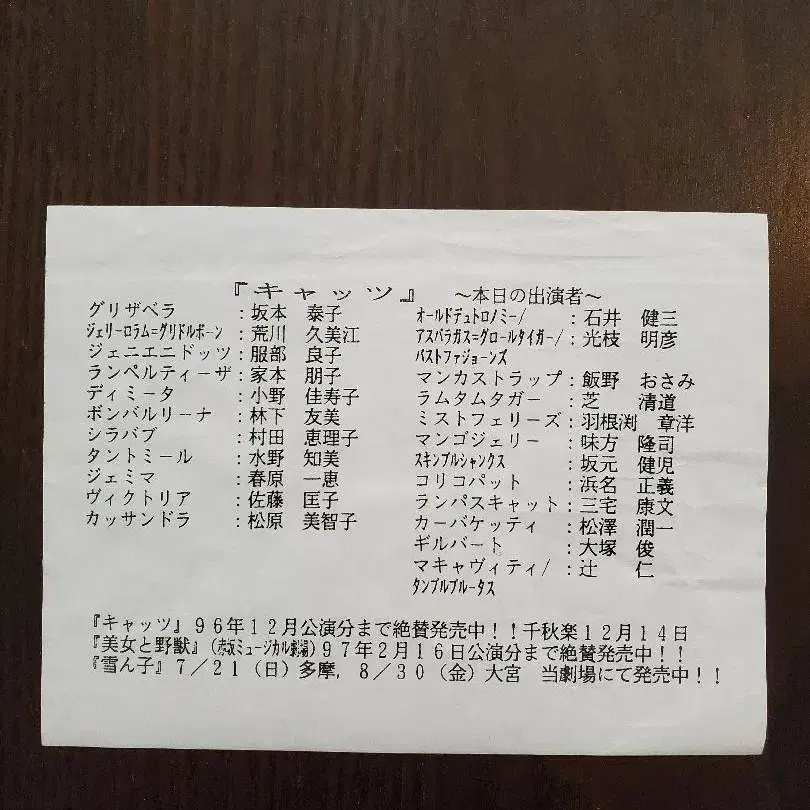 『キャッツ』 ～本日の出演者～
グリザベラ ：坂本 泰子
ジェリーロラム=グリドルボーン ：荒川 久美江
ジェニエニドッツ：服部 良子
ランペルティーザ：家本 朋子
ディミータ ：小野 佳寿子
ボンバルリーナ ：林下 友美
シラバブ ：村田 恵理子
タントミール ：水野 知美
ジェミマ ：春原 一恵
ヴィクトリア ：佐藤 匡子
カッサンドラ ：松原 美智子
オールドデュトロノミー/ ：石井 健三
アスパラガス=グロールタイガー/：光枝 明彦
バストファジョーンズ
マンカストラップ：飯野 おさみ
ラムタムタガー ：芝 清道
ミストフェリーズ：羽根渕 章洋
マンゴジェリー ：味方 隆司
スキンブルシャンクス ：坂元 健児
コリコパット ：浜名 正義
ランパスキャット：三宅 康文
カーバケッティ ：松澤 潤一
ギルバート ：大塚 俊
マキャヴィティ/ ：辻 仁
タンブルブルータス
『キャッツ』９６年１２月公演分まで絶賛発売中！！千秋楽１２月１４日
『美女と野獣』(赤坂ミュージカル劇場)９７年２月１６日公演分まで絶賛発売中！！
『雪ん子』７／２１（日）多摩，８／３０（金）大宮 当劇場にて発売中！！